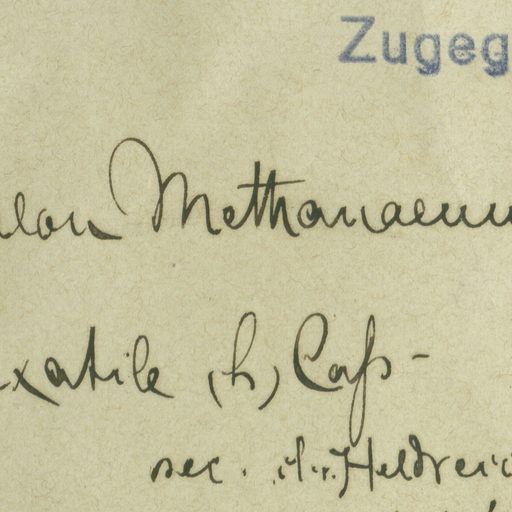 Zugeg
Methanaeum
xatile (L) Cass-
sec. d. v. Heldreic